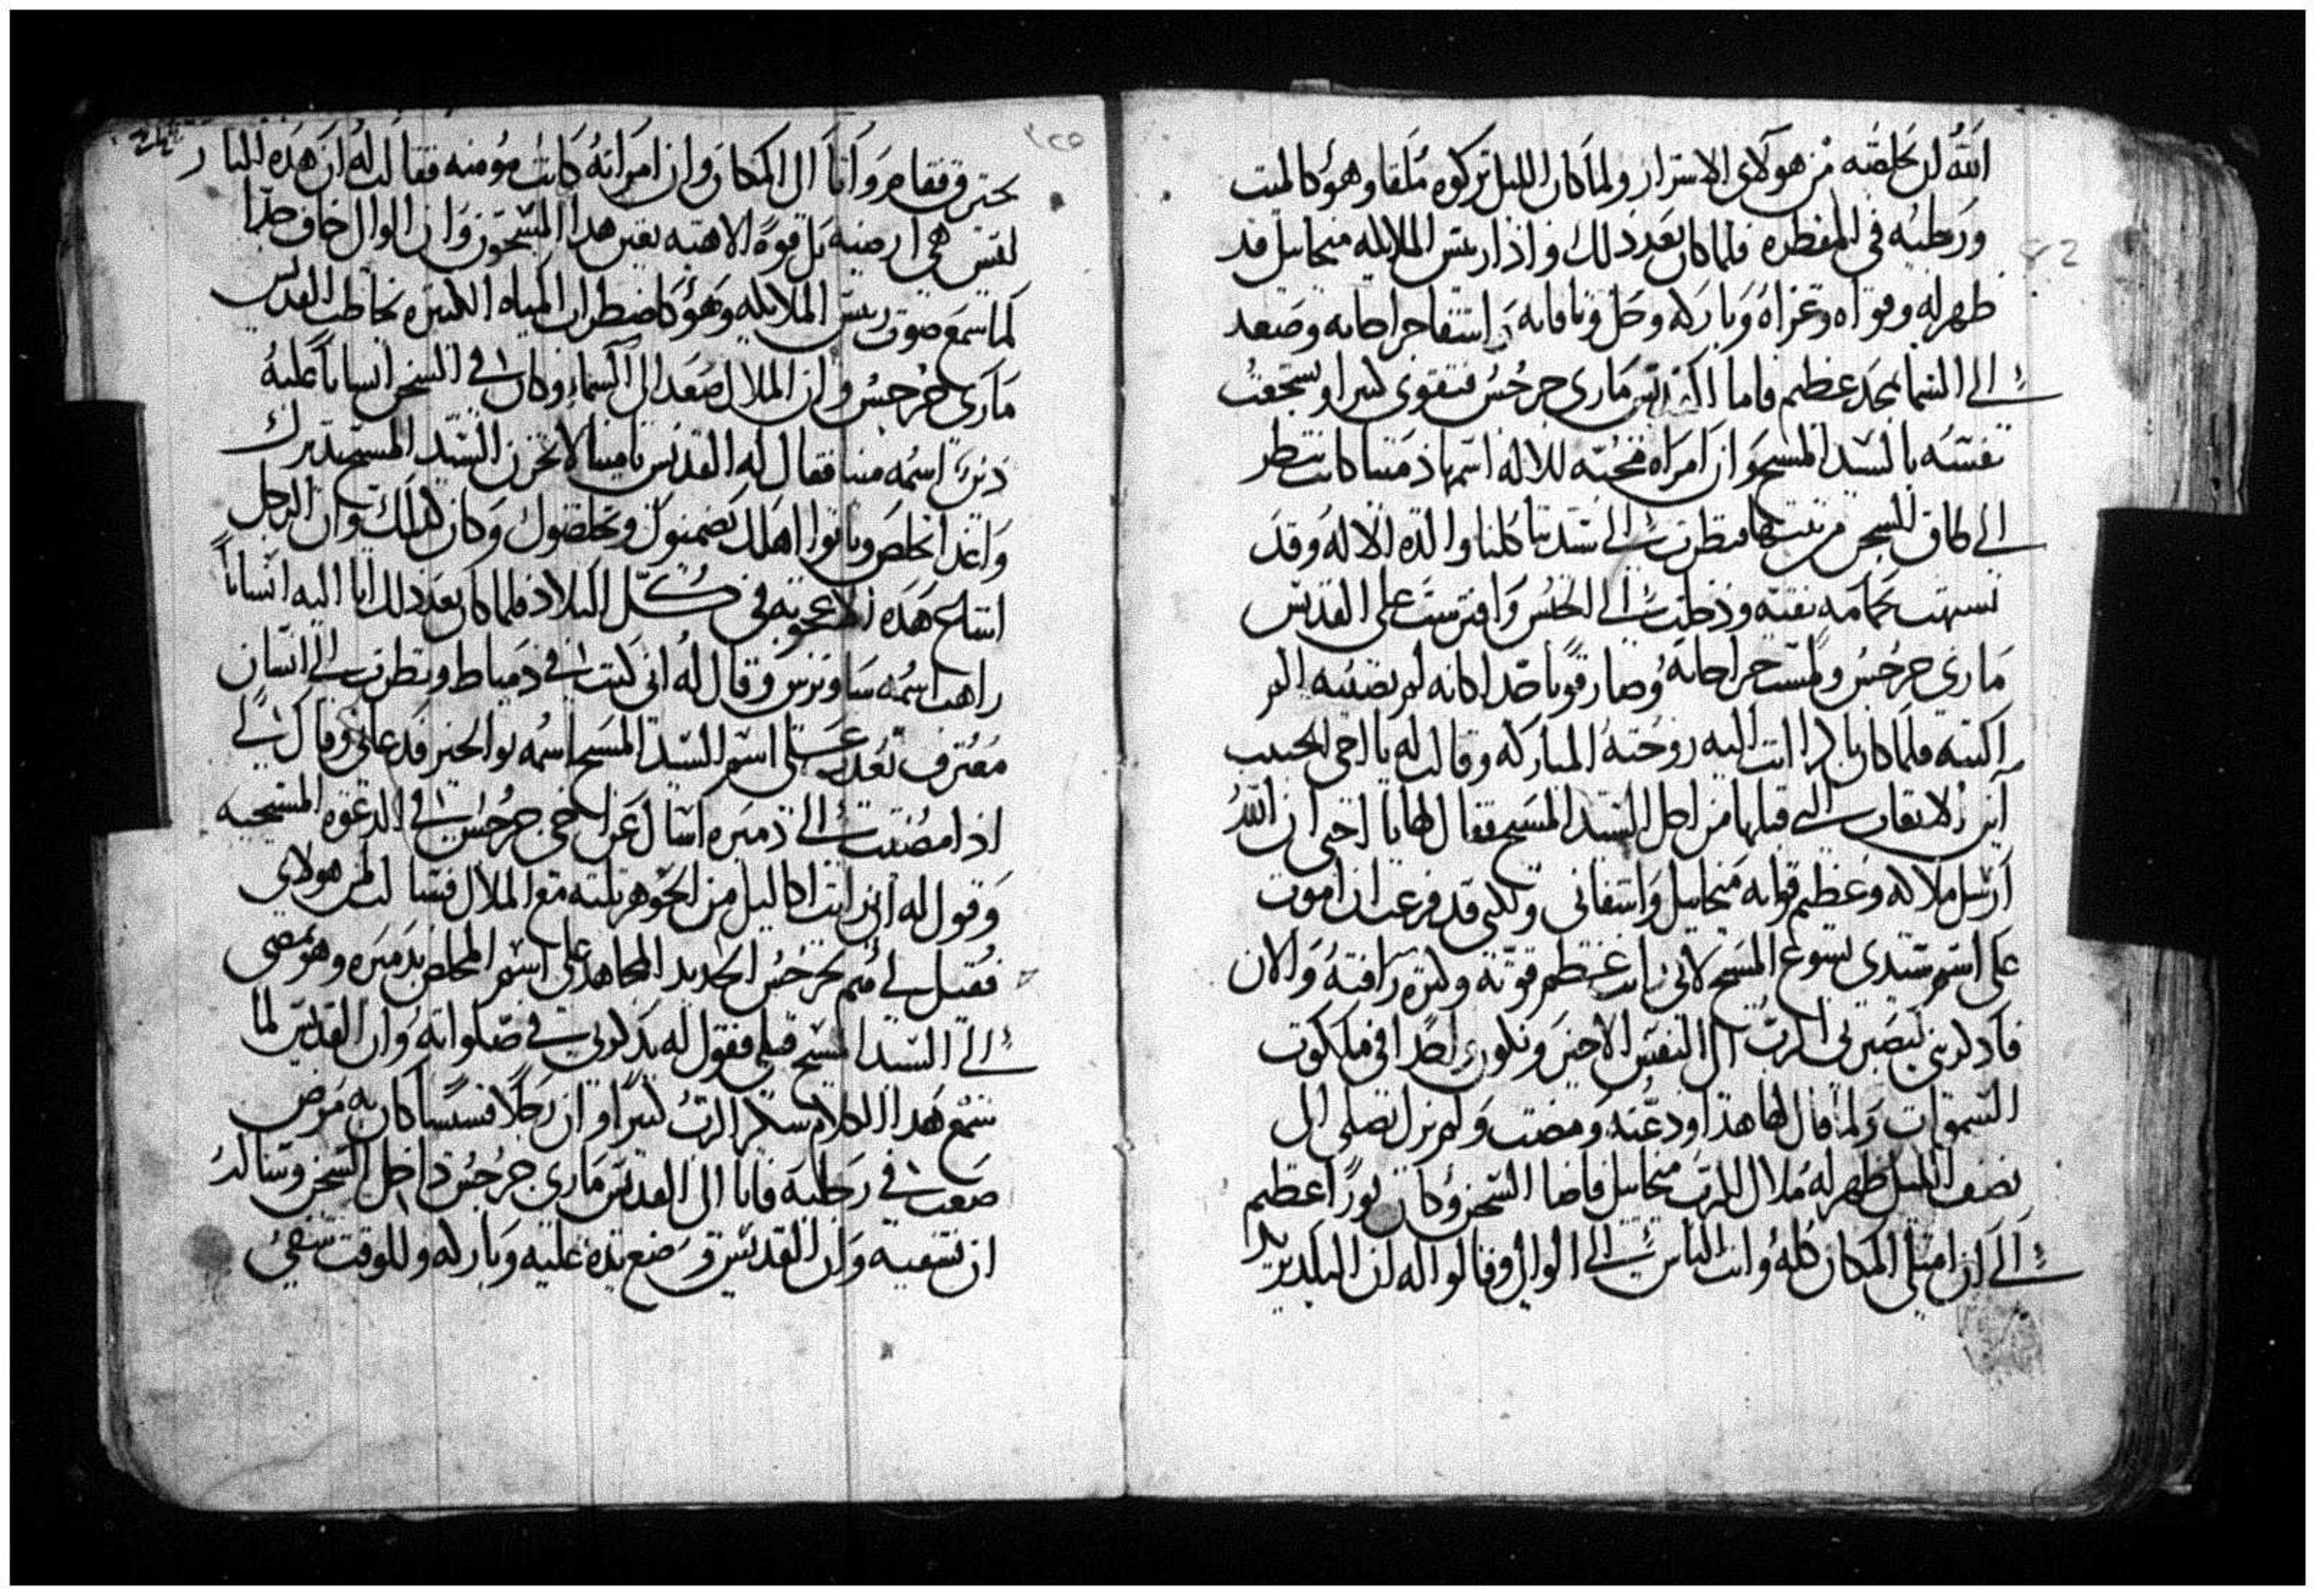 الله ان يخلصه من هولاى الاشرار ولما كان الليل تركوه ملقا وهو كالميت
ورجليه في المقطره فلما كان بعد ذلك واذا ريس الملايكه ميخاييل قد
ظهر له وقواه وعزاه وباركه وحل وثاقاته واشفا جراحاته وصعد
الى السما بمجد عظيم فاما القديس مارى جرجس فتقوى كثيرا وتشجعت
نفسه بالسيد المسيح وان امراه محبه للاله اسمها كانت تنظر
الى طاق السجن من بيتها فنظرت الى ستنا كلنا والدة الاله وقد
تشبهت بحمامه نقيه ودخلت الى الحبس وافترشت على القديس
مارى جرجس ولمست جراحاته وصار قويا جدا كانه لم يصيبه الم
البته فلما كان باكرا اتت اليه زوجته المباركه وقالت له يا اخى الحبيب
اين الاتعاب التى قبلتها من اجل السيد المسيح فقال لها يا اختى ان الله
ارسل ملاكه وعظيم قواته ميخاييل واشفانى ولكنى قد فرغت ان اموت
على اسم سيدى يسوع المسيح لانى رايت عظم قوته وكثرة رافته والان
فادكرينى ليصبرنى الرب الى النفس الاخير ونكون ايضا في ملكوت
السموات ولما قال لها هذا ودعته ومضت ولم يزل يصلى الى
نصف الليل ظهر له ملاك الرب ميخاييل فاضا السجن وكان نورا عظيم
الى ان امتلى المكان كله واتت الناس الى الوالى وقالوا له ان البلد يريد
يحترق فقام واتا الى المكان وان امراته كانت مومنه فقالت له ان هذه النار
ليس هى ارضيه بل قوة الاهيه تعين هدا المسجون وان الوالى خاف جدا
لما سمع صوت ريس الملايكه وهو كاضطراب المياه الكثيره يخاطب القديس
مارى جرجس وان الملاك صعد الى السماء وكان في السجن انسانا عليه
دين اسمه مينا فقال له القديس يا مينا لا تحزن السيد المسيح يدبرك
وغدا تخلص وياتوا اهلك يضمنوك ويخلصوك وكان كذلك وان الرجل
اشاع هذه الاعجوبه في كل البلاد فلما كان بعد ذلك اتا اليه انسانا
راهب اسمه ساويرس وقال له انى كنت في دمياط ونظرت الى انسان
معترف تعذب على اسم السيد المسيح اسمه بو الخير فدعانى وقال لى
اذا مضيت الى دميره اسال عن اخى جرجس في الدعوه المسيحيه
وقول له انى رايت اكاليل من الجوهر تلته مع الملاك فسالت لمن هولاى
فقيل لى هم لجرجس الجديد المجاهد على اسم المخلص بدميره وهو يمضى
الى السيد المسيح قبلى فقول له يذكرنى في صلواته وان القديس لما
سمع هذا الكلام شكر الرب كثيرا وان رجلا قسيسا كان به مرض
صعب في رجليه فاتا الى القديس مارى جرجس داخل السجن وساله
ان يشفيه وان القديس وضع يده عليه وباركه وللوقت شفى